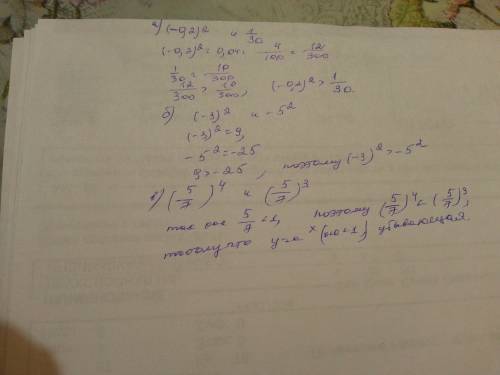 а) (-0,2)² и 1/30
(-0,2)² = 0,04 = 4/100 = 12/300
1/30 = 10/300
12/300 > 10/300, (-0,2)² > 1/30.
б) (-3)² и -5²
(-3)² = 9,
-5² = -25
9 > -25, поэтому (-3)² > -5²
в) (5/7)⁴ и (5/7)³
так как 5/7 < 1, поэтому (5/7)⁴ < (5/7)³,
потому что y = aˣ убывающая.